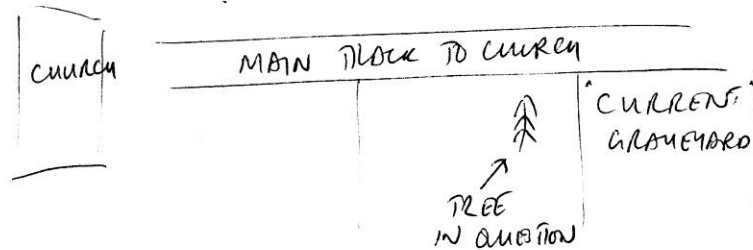 CHURCH
MAIN TRACK TO CHURCH
"CURRENT"
GRAVEYARD
TREE
IN QUESTION